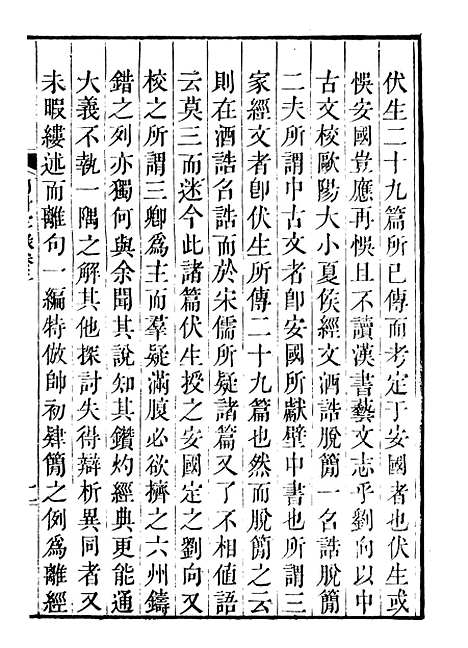 伏生二十九篇所已傳而考定于安國者也伏生或
悞安國豈應再悞且不讀漢書藝文志乎劉向以中
古文校歐陽大小夏侯經文酒誥脫簡一名誥脫簡
二夫所謂中古文者卽安國所獻壁中書也所謂三
家經文者卽伏生所傳二十九篇也然而脫簡之云
則在酒誥名誥而於宋儒所疑諸篇又了不相値語
云莫三而迷今此諸篇伏生授之安國定之劉向又
校之所謂三卿爲主而羣疑滿腹必欲擠之六州鑄
錯之列亦獨何與余聞其說知其鑽灼經典更能通
大義不執一隅之解其他探討失得辯析異同者又
未暇縷述而離句一編特倣帥初肄簡之例爲離經